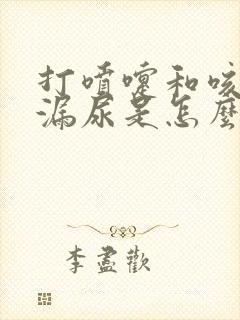 打噴嚏和咳
漏尿是怎麼
李盡歡